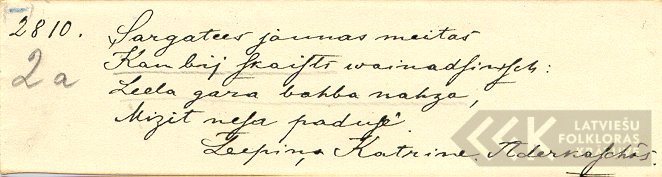 2810. Sargatees jaunas meitas
2a Kam bij skaists wainadsinsch:
Leela gara bahba nahza,
Mizit nesa padusē.
Leepiņ, Katrine. Aderkaschōs.
LATVIEŠU
FOLKLORAS